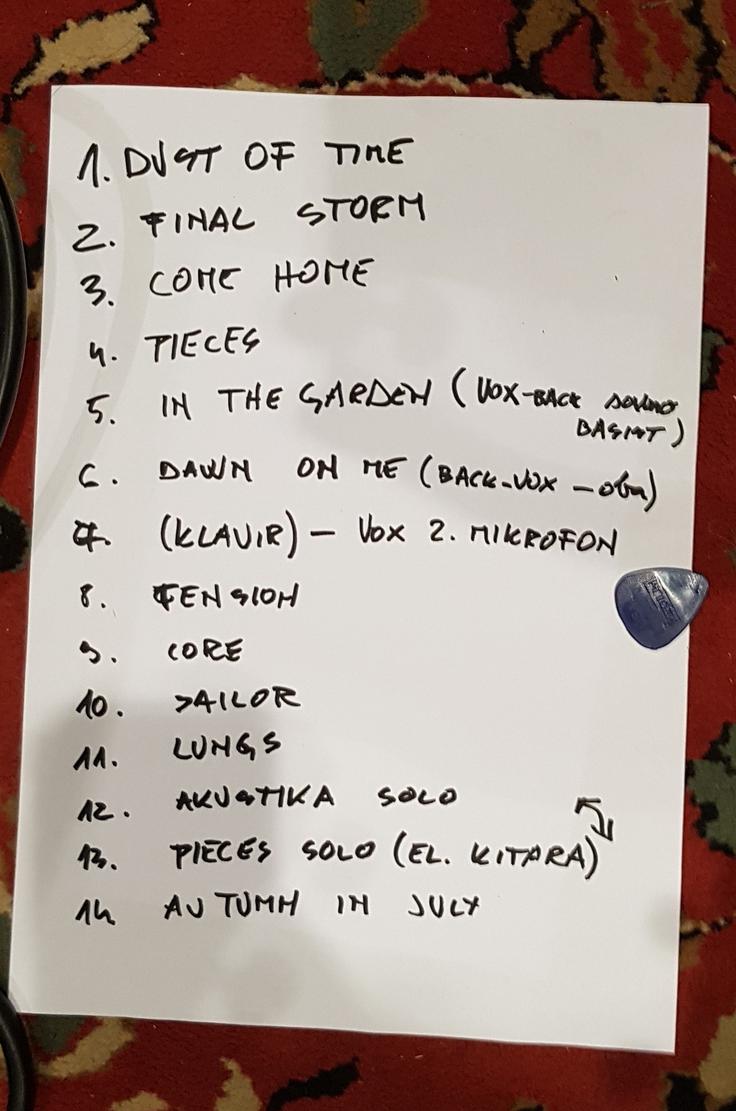 1. DUST OF TIME
2. FINAL STORM
3. COME HOME
4. PIECES
5. IN THE GARDEN (VOX-BACK
BASIST)
6. DAWN ON ME (BACK-VOX - oba)
7. (KLAVIR) - VOX 2. MIKROFON
8. TENSION
9. CORE
10. SAILOR
11. LUNGS
12. AKUSTIKA SOLO
13. PIECES SOLO (EL. KITARA)
14 AUTUMN IN JULY